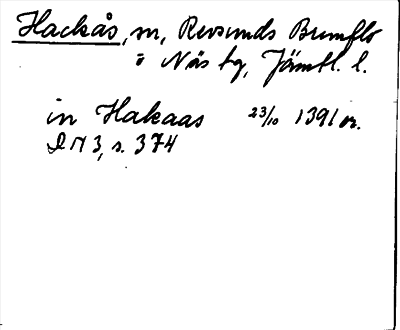 Hackås, sn, Revsunds Brunflo
o Näs tg, Jämtl. l.
in Hakaas 23/10 1391 or.
DN 3, s. 374